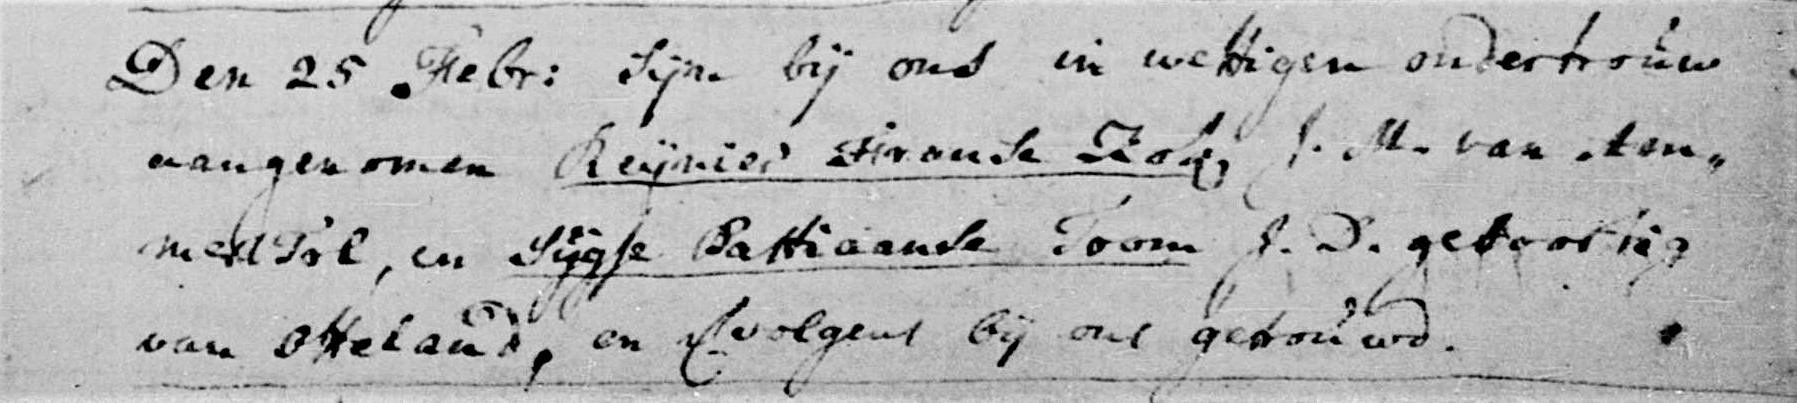 Den 25 Febr: sijn bij ons in wettigen ondertrouw
aangenomen Reijnier J. M. van Am„
merstol, en Sijgje Bastiaanse Toom J. D. geboortig
van Otteland, en volgens bij ons getrouwd.